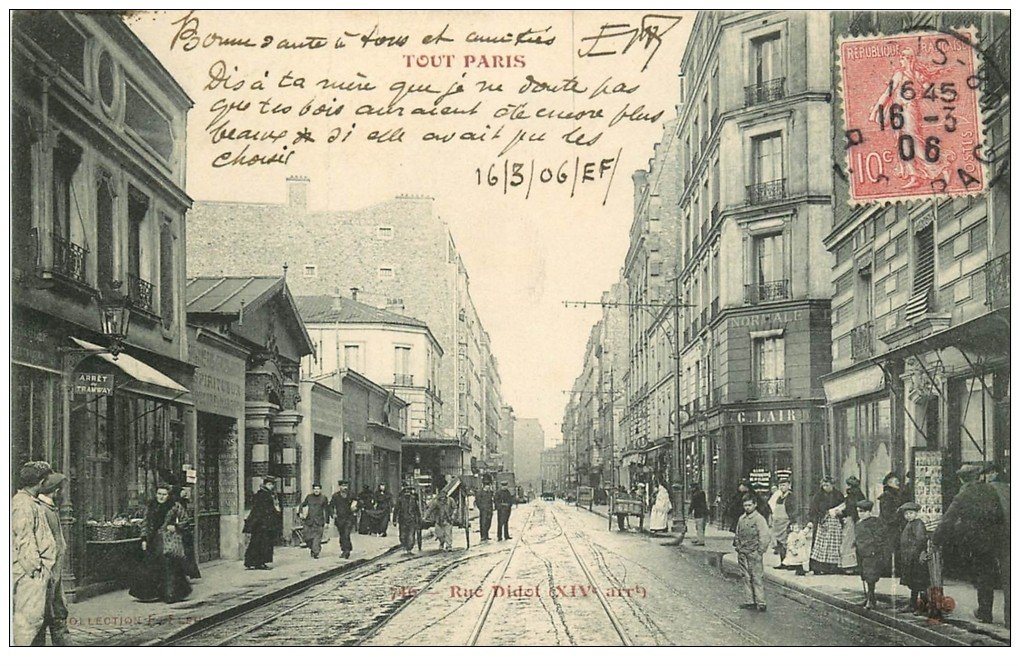 Bonne santé à tous et amitiés
EF
TOUT PARIS
Dis à ta mère que je ne doute pas
que tes bois auraient été encore plus
beaux si elle avait pu les
choisir
16/3/06/EF/
RÉPUBLIQUE FRANÇAISE
10c
POSTES
1645
16 - 3
06
NORMALE
G. LAIR
ARRÊT
TRAMWAY
746 - Rue Didot (XIVe arrt)
COLLECTION F. FLEURY